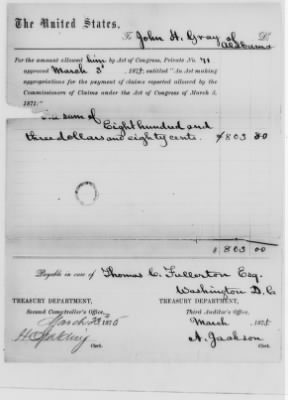 The United States,
To John H. Gray, of Alabama Dr.
For the amount allowed him by Act of Congress, Private No. 71
approved March 3d, 1875, entitled "An Act making
appropriations for the payment of claims reported allowed by the
Commissioners of Claims under the Act of Congress of March 3,
1871:"
The sum of
Eight hundred and
three dollars and eighty cents. $803 80
$ 803 00
Payable in care of Thomas C. Fullerton Esq.
Washington D.C.
TREASURY DEPARTMENT, TREASURY DEPARTMENT,
Second Comptroller's Office, Third Auditor's Office,
March 1875 March, 1875
A. Jackson
Clerk. Clerk.